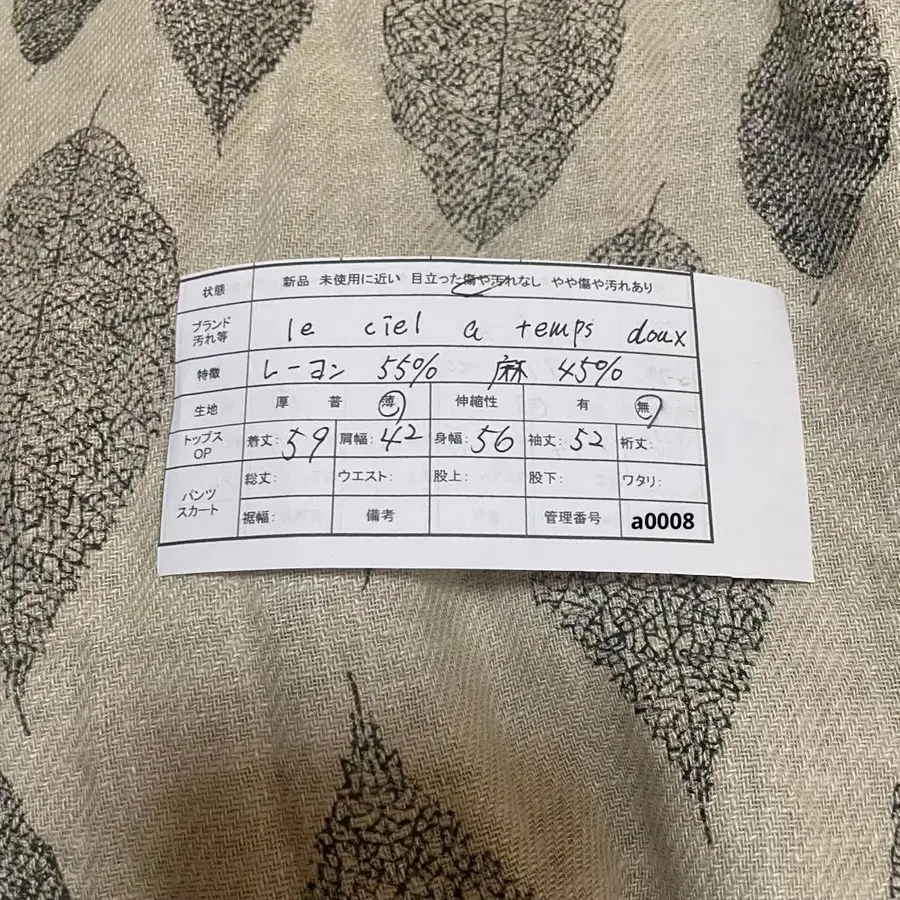 状態 新品 未使用に近い 目立った傷や汚れなし やや傷や汚れあり
ブランド 汚れ等 le ciel a temps doux
特徴 レーヨン 55% 麻 45%
生地 厚 普 薄 伸縮性 有 無
トップス OP 着丈:59 肩幅:42 身幅:56 袖丈:52 裄丈:
パンツ スカート 総丈: ウエスト: 股上: 股下: ワタリ:
裾幅: 備考 管理番号 a0008